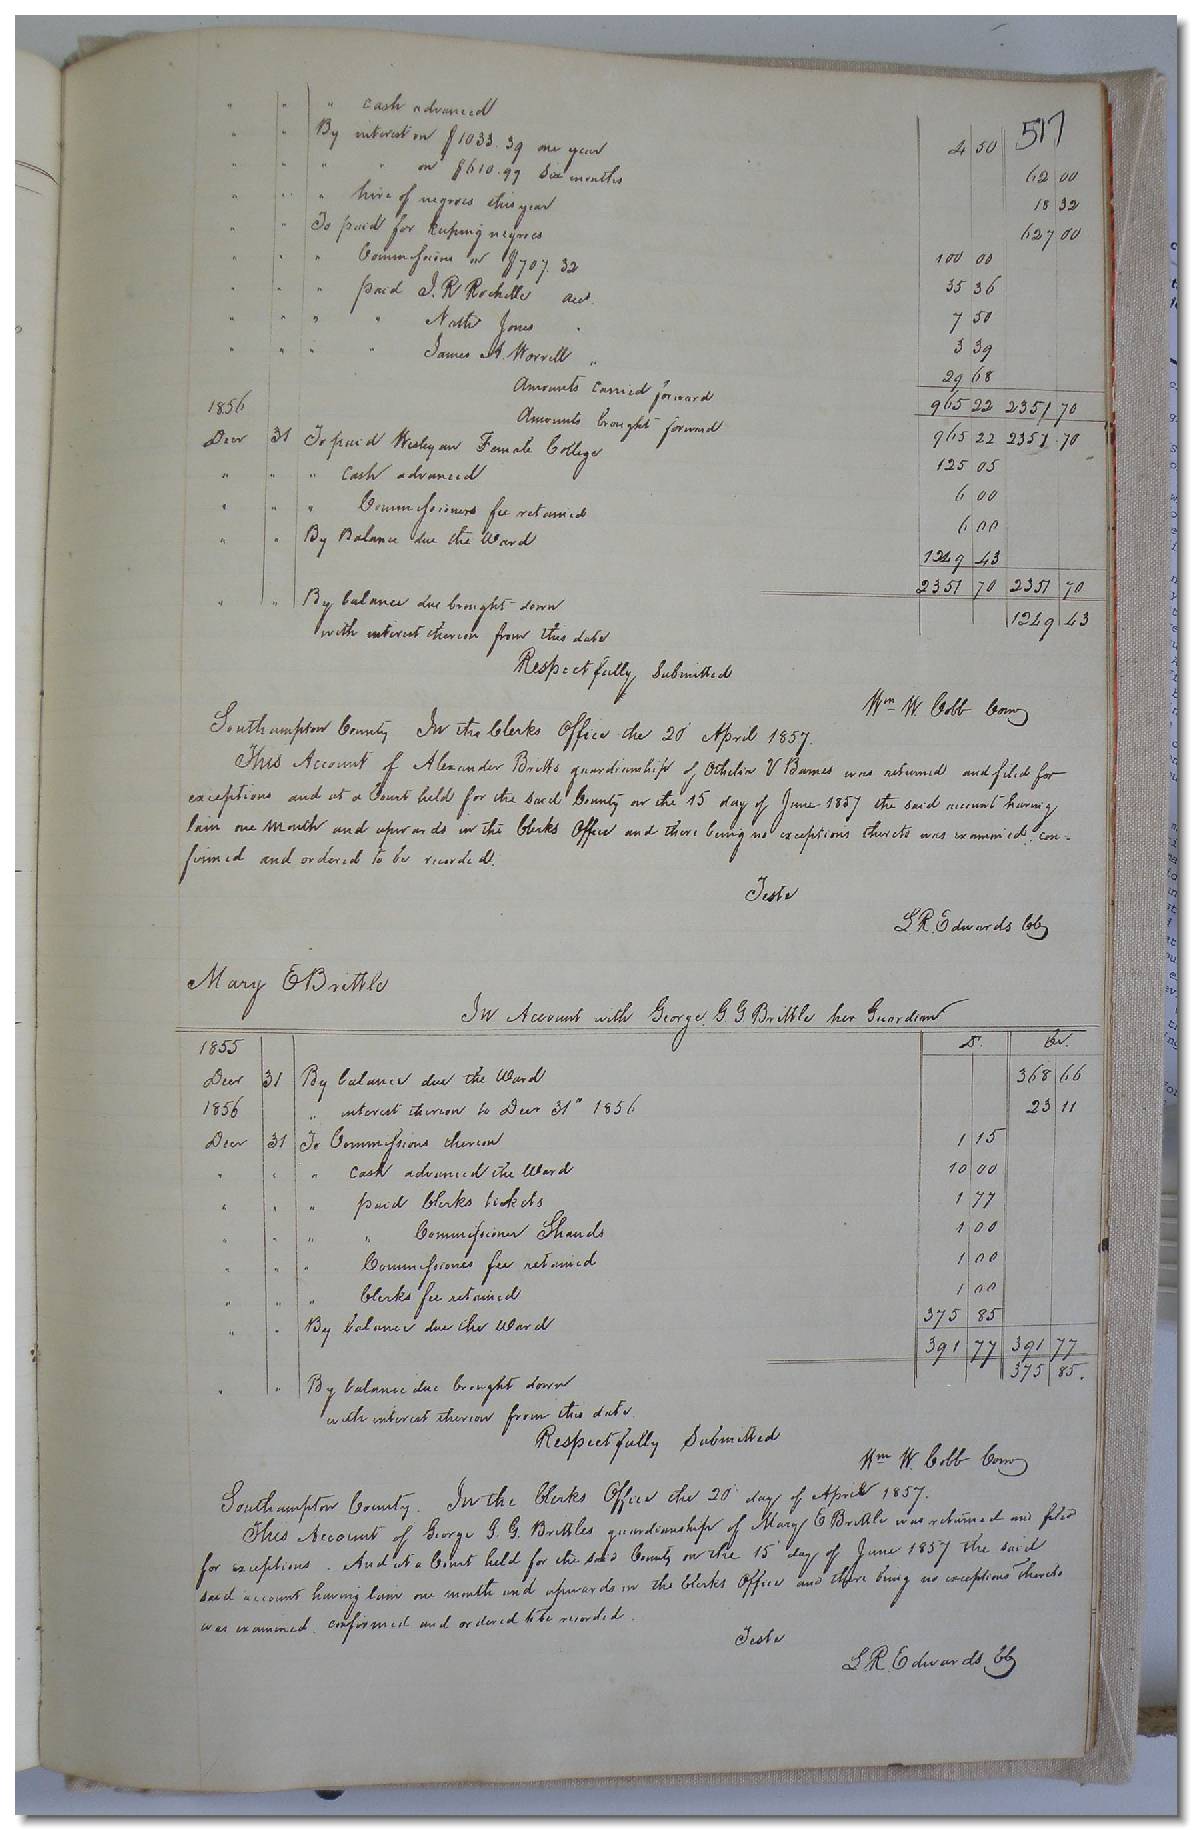 517
" " " cash advanced 4 50
" " By interest on $1033.39 one year 62 00
" " " " on $610.99 Six months 18 32
" " " hire of negroes this year 627 00
" " To paid for keeping negroes 100 00
" " " Commissions on $707.32 35 36
" " " paid J. R Rochelle acct. 7 50
" " " " Nath Jones " 3 39
" " " " James A. Worrell " 29 68
Amounts carried forward 965 22 2351 70
1856 Amounts brought forward 965 22 2351.70
Decr 31 To paid Wesleyan Female College 125 05
" " " cash advanced 6 00
" " " Commissioners fee retained 6 00
" " By Balance due the Ward 1249 43
2351 70 2351 70
" " By balance due brought down 1249 43
with interest thereon from this date
Respectfully Submitted
Wm W. Cobb Comr
Southampton County In the Clerks Office the 20 April 1857.
This Account of Alexander Britts guardianship of V Barnes was returned and filed for
exceptions and at a Court held for the said County on the 15 day of June 1857 the said account having
lain one Month and upwards in the Clerks Office and there being no exceptions thereto was examined, con-
firmed and ordered to be recorded.
Teste
L R. Edwards Clk
Mary E Brittle
In Account with George G. G Brittle her Guardian
1855 Dr. Cr.
Decr 31 By balance due the Ward 368 66
1856 " interest thereon to Decr 31" 1856 23 11
Decr 31 To Commissions thereon 1 15
" " " cash advanced the Ward 10 00
" " " paid Clerks tickets 1 77
" " " " Commissioner Shands 1 00
" " " Commissiones fee retained 1 00
" " " Clerks fee retained 1 00
" " By balance due the Ward 375 85
391 77 391 77
375 85.
" " By balance due brought down
with interest thereon from this date.
Respectfully Submitted
Wm W. Cobb Comr
Southampton County. In the Clerks Office the 20 day of April 1857.
This Account of George G. G. Brittles guardianship of Mary E Brittle was returned and filed
for exceptions. And at a Court held for the said County on the 15 day of June 1857 the said
said account having lain one month and upwards in the Clerks Office and there being no exceptions thereto
was examined, confirmed and ordered to be recorded.
Teste
L R. Edwards Clk